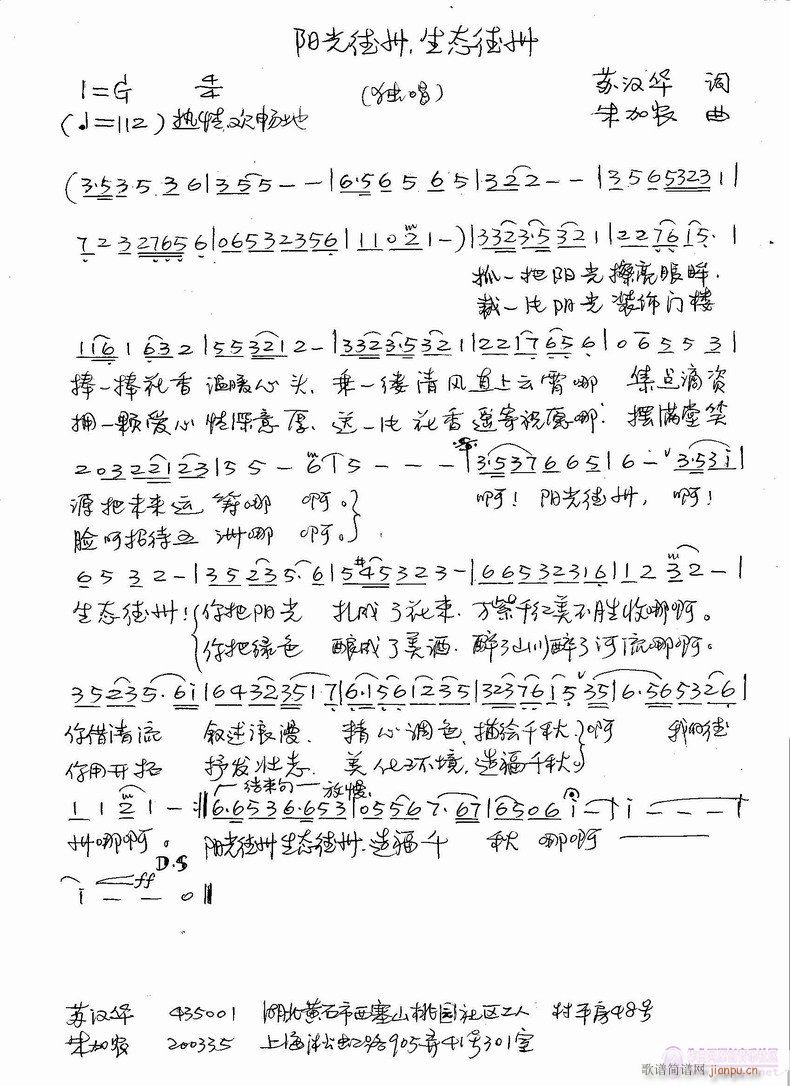 阳光德州，生态德州
1=G 4/4 (独唱) 苏汉华 词
(♩=112) 热情欢畅地 朱加农 曲
(3·535 36|355--|6·56565|322--|356532 31|
7232765 6|06532356|1102 1-)|3323·5321|22761 5·|
抓一把阳光擦亮眼眸，
裁一片阳光装饰门楼
116 1 632|553212-|3323·5321|2217656|06553|
捧一捧花香温暖心头，乘一缕清风直上云霄哪 集点滴资
拥一颗爱心情深意厚，送一片花香遥寄祝愿哪：摆满堂笑
203221 23|55-6↑5---|3·5376 65|6-ˇ3·53i|
源把未来运筹哪 啊。 啊！阳光德州，啊！
脸呵招待五洲哪 啊。
6532-|35235·6|5#45323-|665323 16|1232-|
生态德州！你把阳光 扎成了花束，万紫千红美不胜收哪啊。
你把绿色 酿成了美酒，醉了山川醉了河流哪啊。
35235·6i|643235 1·7|6·1561235|3237615ˇ35|6·565326|
你借清流 叙述浪漫，精心调色，描绘千秋，啊 我的德
你用开拓 抒发壮志，美化环境，造福千秋。
结束句 放慢
112 1-:||6·6536·653|05567·67|6506i-|i---|
州哪啊。 阳光德州生态德州，造福千 秋 哪啊
D.S
ff
i--0||
苏汉华 435001 湖北黄石市西塞山桃园社区工人村平房48号
朱加农 200335 上海淞虹路905弄41号301室
歌谱简谱网 jianpu.cn